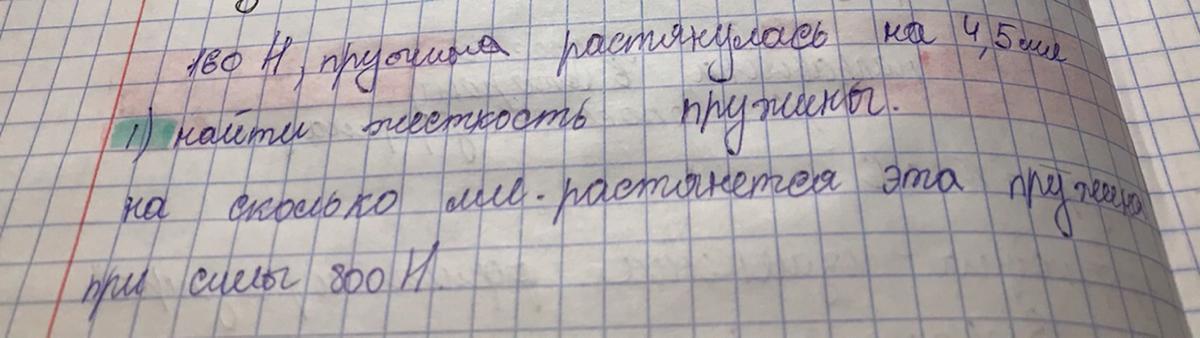 180 Н, пружина растянулась на 4,5 мм
1) найти жесткость пружины.
на сколько мм. растянется эта пружина
при силы 800 Н.